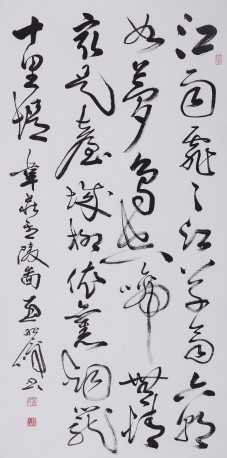 江雨霏〻江草齊六朝
如夢鳥空啼無情
最是臺城柳依舊烟籠
十里堤韋莊金陵圖